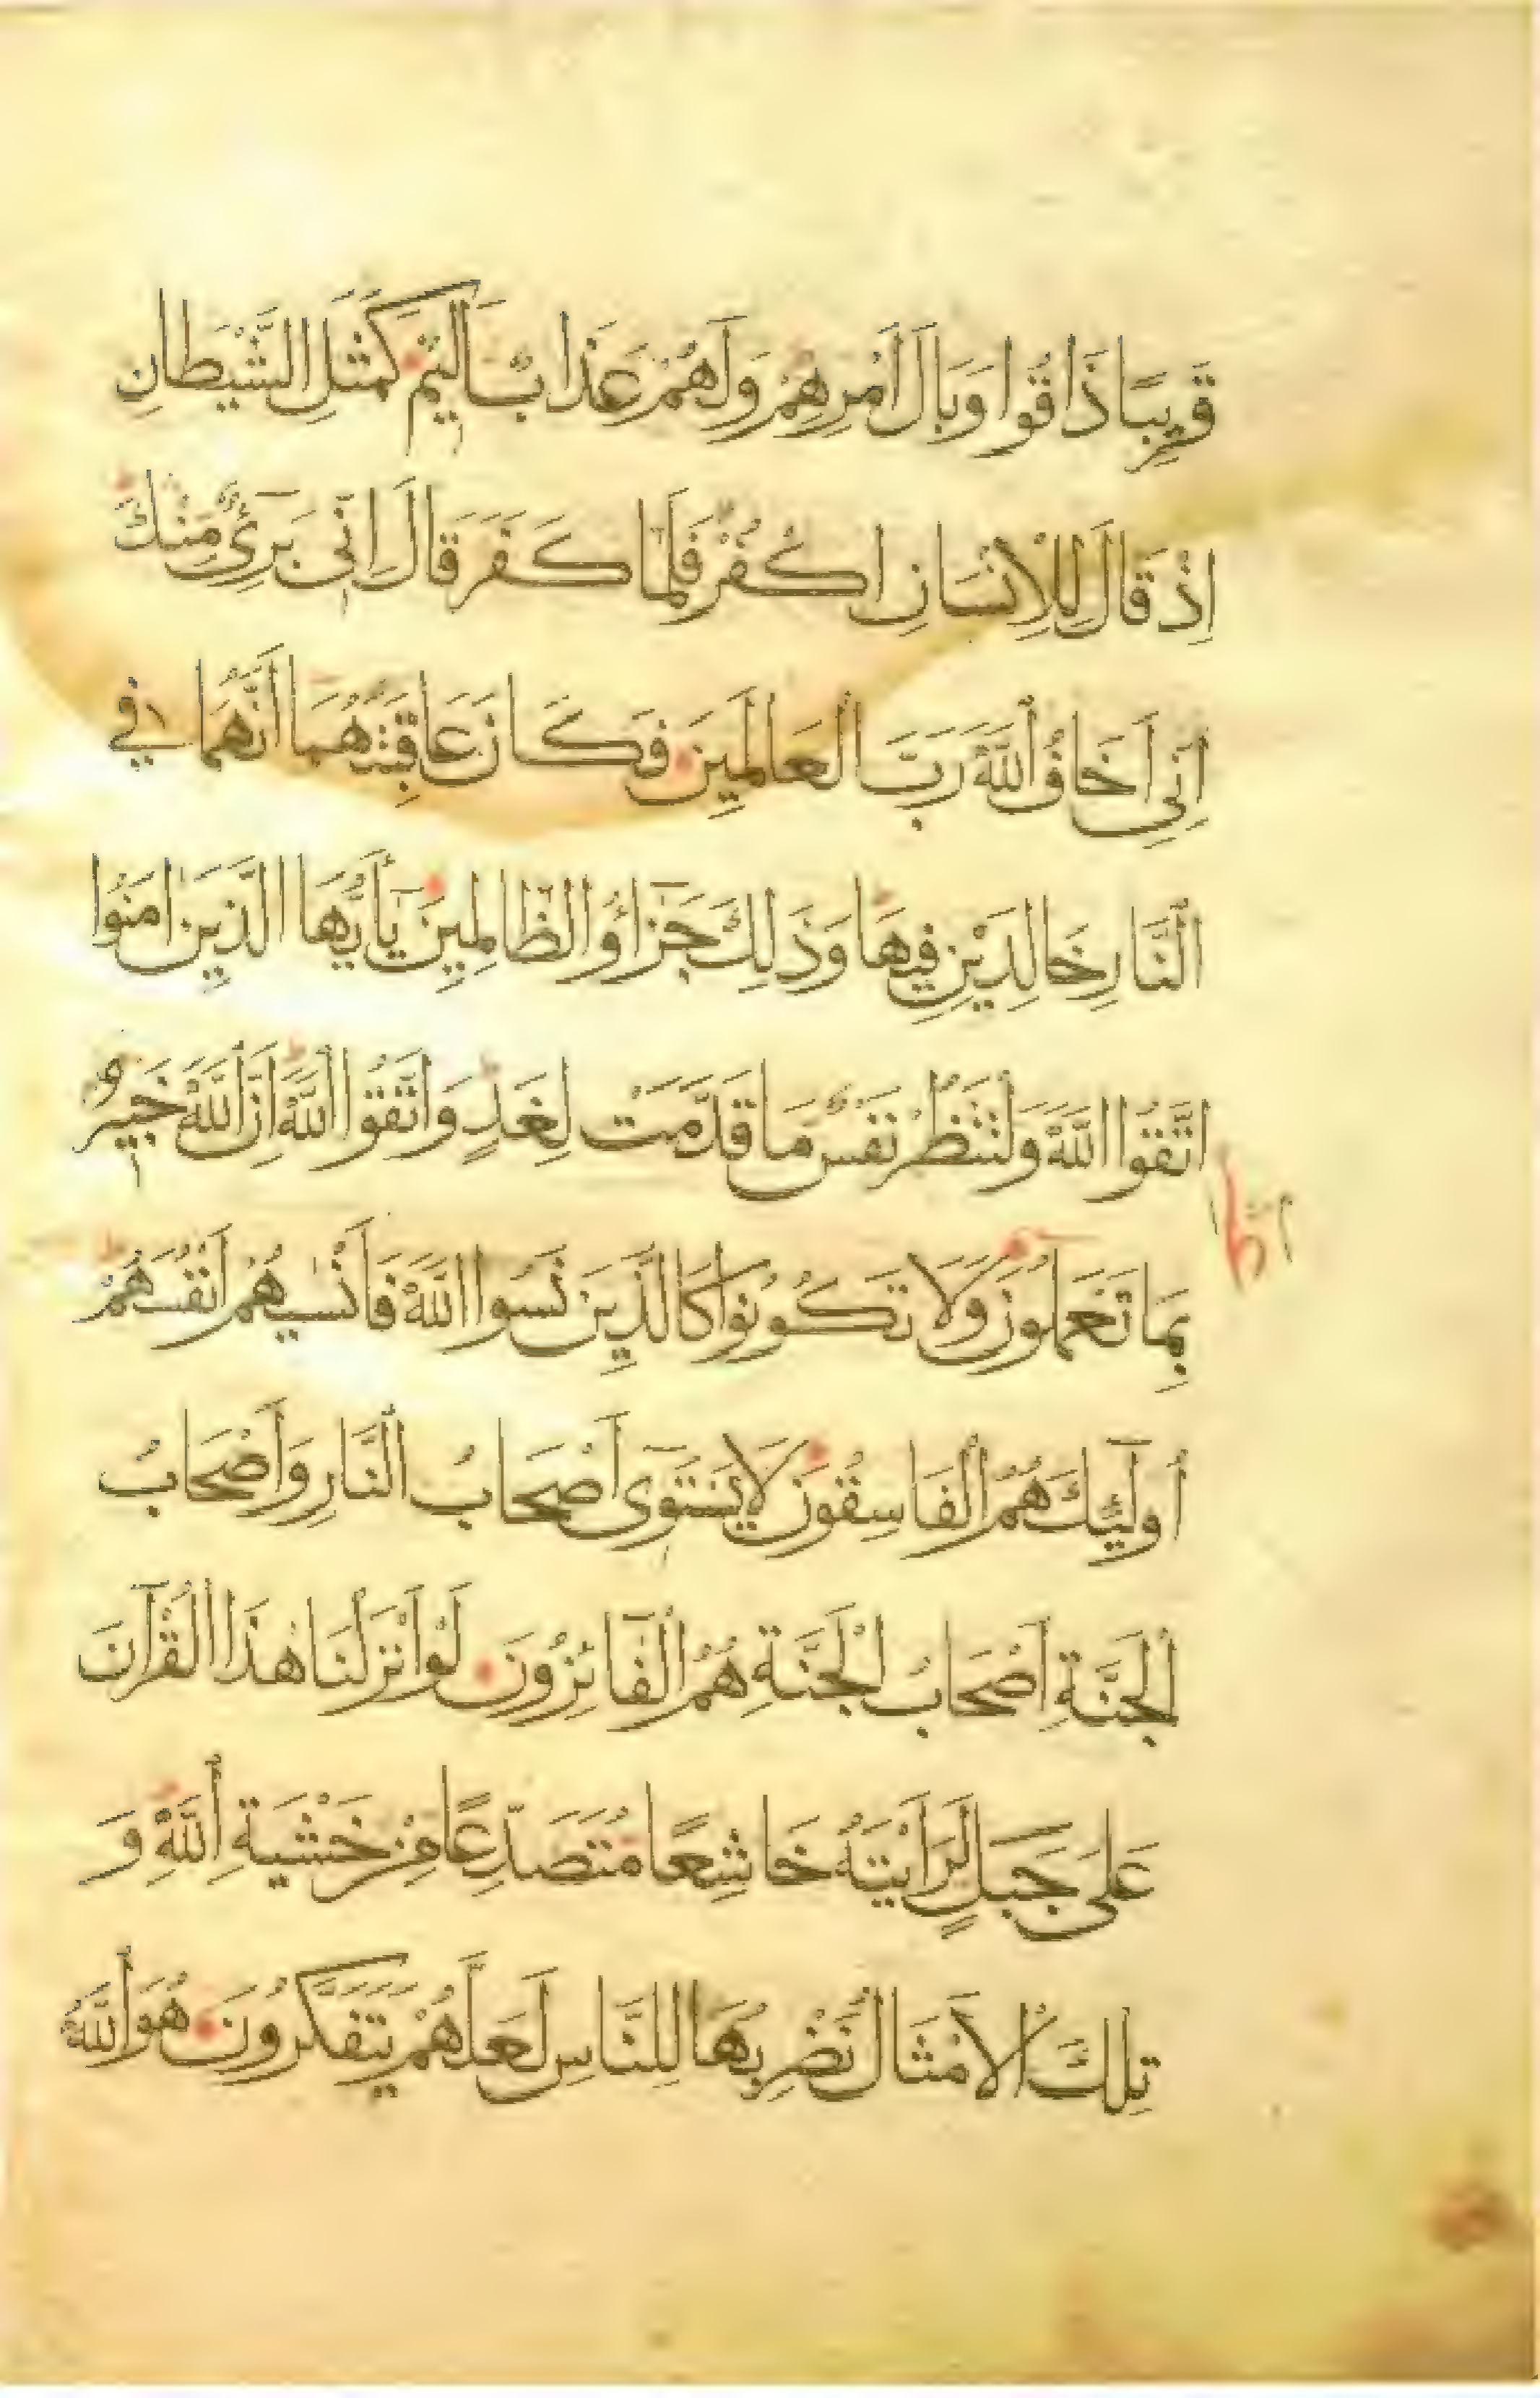 قَرِيبًا ذَاقُوا وَبَالَ اَمْرِهِمْ وَلَهُمْ عَذَابٌ اَلِيمٌ كَمَثَلِ الشَّيْطَانِ
اِذْ قَالَ لِلْاِنْسَانِ اكْفُرْ فَلَمَّا كَفَرَ قَالَ اِنِّى بَرِىٓءٌ مِنْكَ
اِنِّى اَخَافُ اللّٰهَ رَبَّ الْعَالَمِينَ فَكَانَ عَاقِبَتَهُمَا اَنَّهُمَا فِى
النَّارِ خَالِدَيْنِ فِيهَا وَذَلِكَ جَزَٓاؤُ الظَّالِمِينَ يَٓا اَيُّهَا الَّذِينَ اٰمَنُوا
اتَّقُوا اللّٰهَ وَلْتَنْظُرْ نَفْسٌ مَا قَدَّمَتْ لِغَدٍ وَاتَّقُوا اللّٰهَ اِنَّ اللّٰهَ خَبِيرٌ
بِمَا تَعْمَلُونَ وَلَا تَكُونُوا كَالَّذِينَ نَسُوا اللّٰهَ فَاَنْسٰيهُمْ اَنْفُسَهُمْ
اُولَٓئِكَ هُمُ الْفَاسِقُونَ لَا يَسْتَوِٓى اَصْحَابُ النَّارِ وَاَصْحَابُ
الْجَنَّةِ اَصْحَابُ الْجَنَّةِ هُمُ الْفَٓائِزُونَ لَوْ اَنْزَلْنَا هٰذَا الْقُرْاٰنَ
عَلَى جَبَلٍ لَرَاَيْتَهُ خَاشِعًا مُتَصَدِّعًا مِنْ خَشْيَةِ اللّٰهِ وَ
تِلْكَ الْاَمْثَالُ نَضْرِبُهَا لِلنَّاسِ لَعَلَّهُمْ يَتَفَكَّرُونَ هُوَ اللّٰهُ